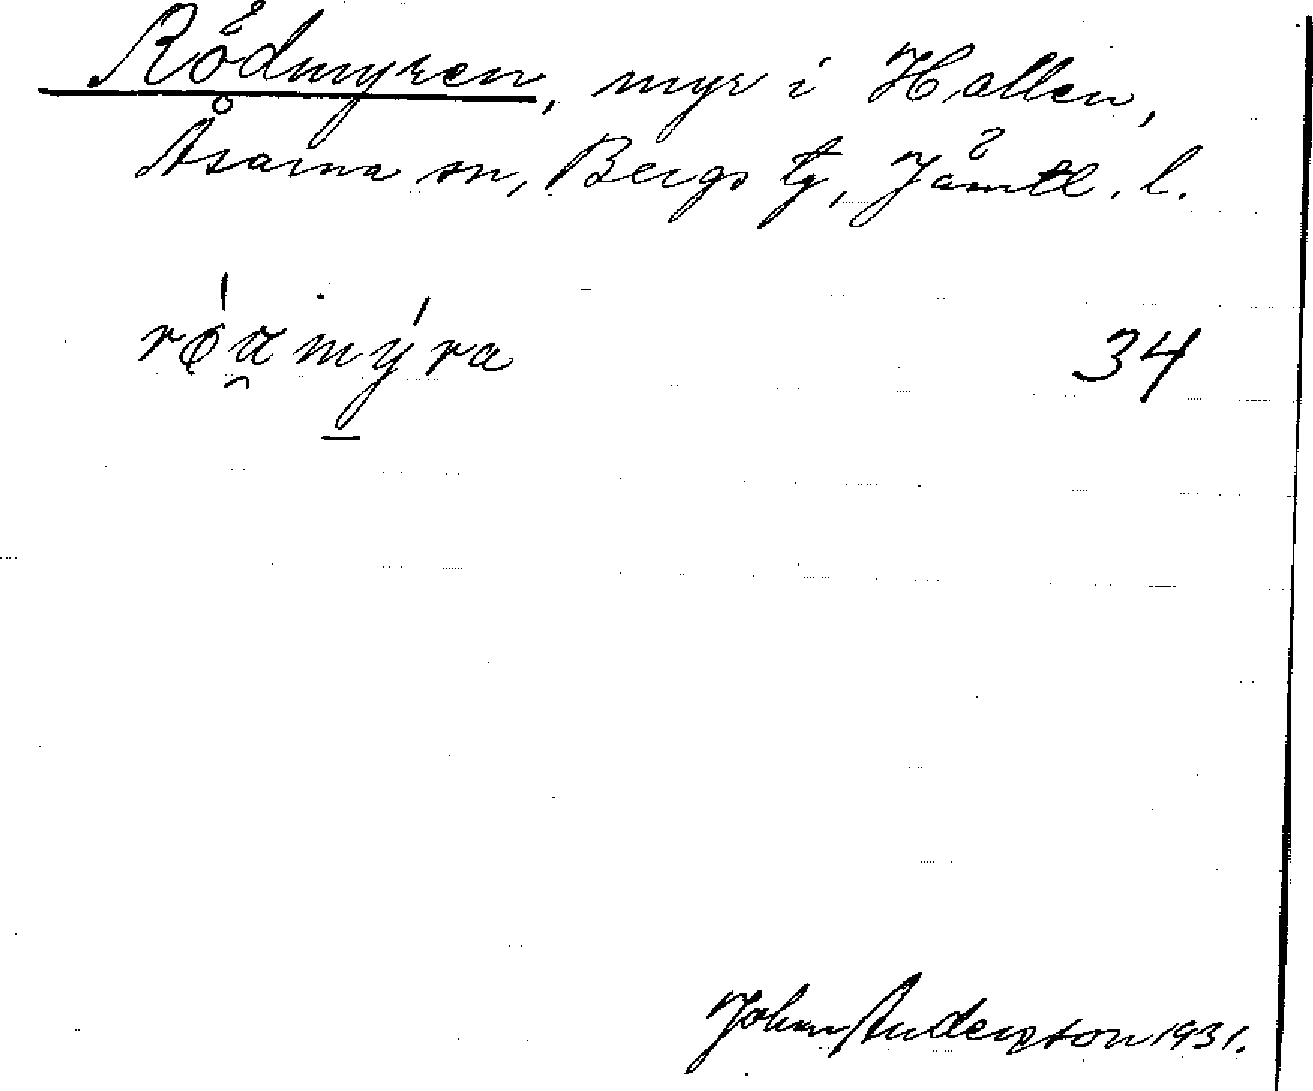 Rödmyren, myr i Hallen,
Åsarna sn, Bergs tg, Jämtl. l.
34
Johan Anderzton 1931.